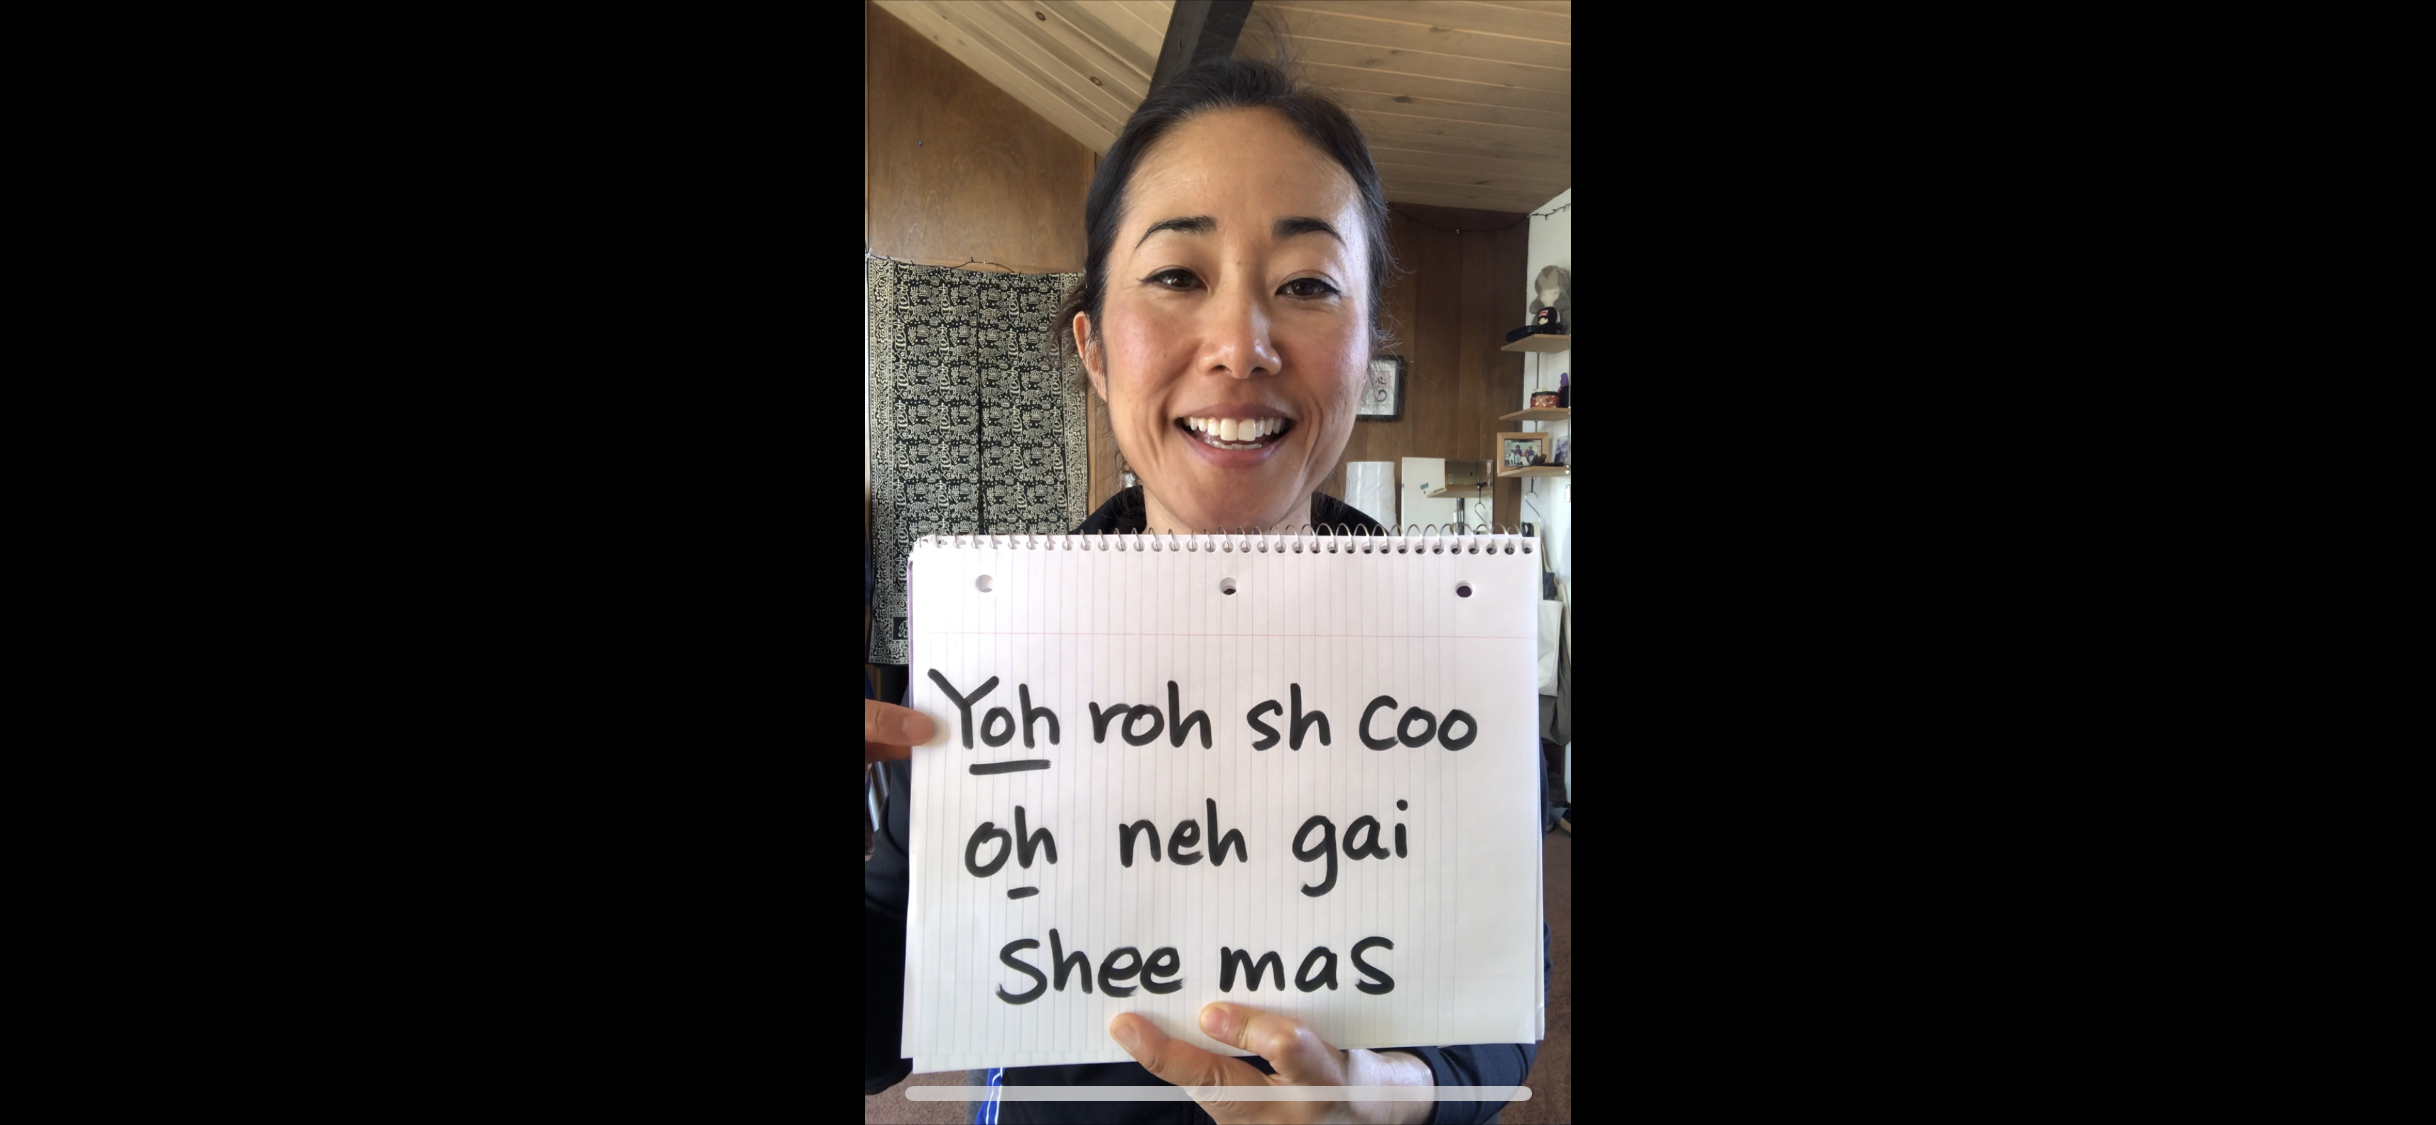 Yoh roh sh coo
oh neh gai
shee mas